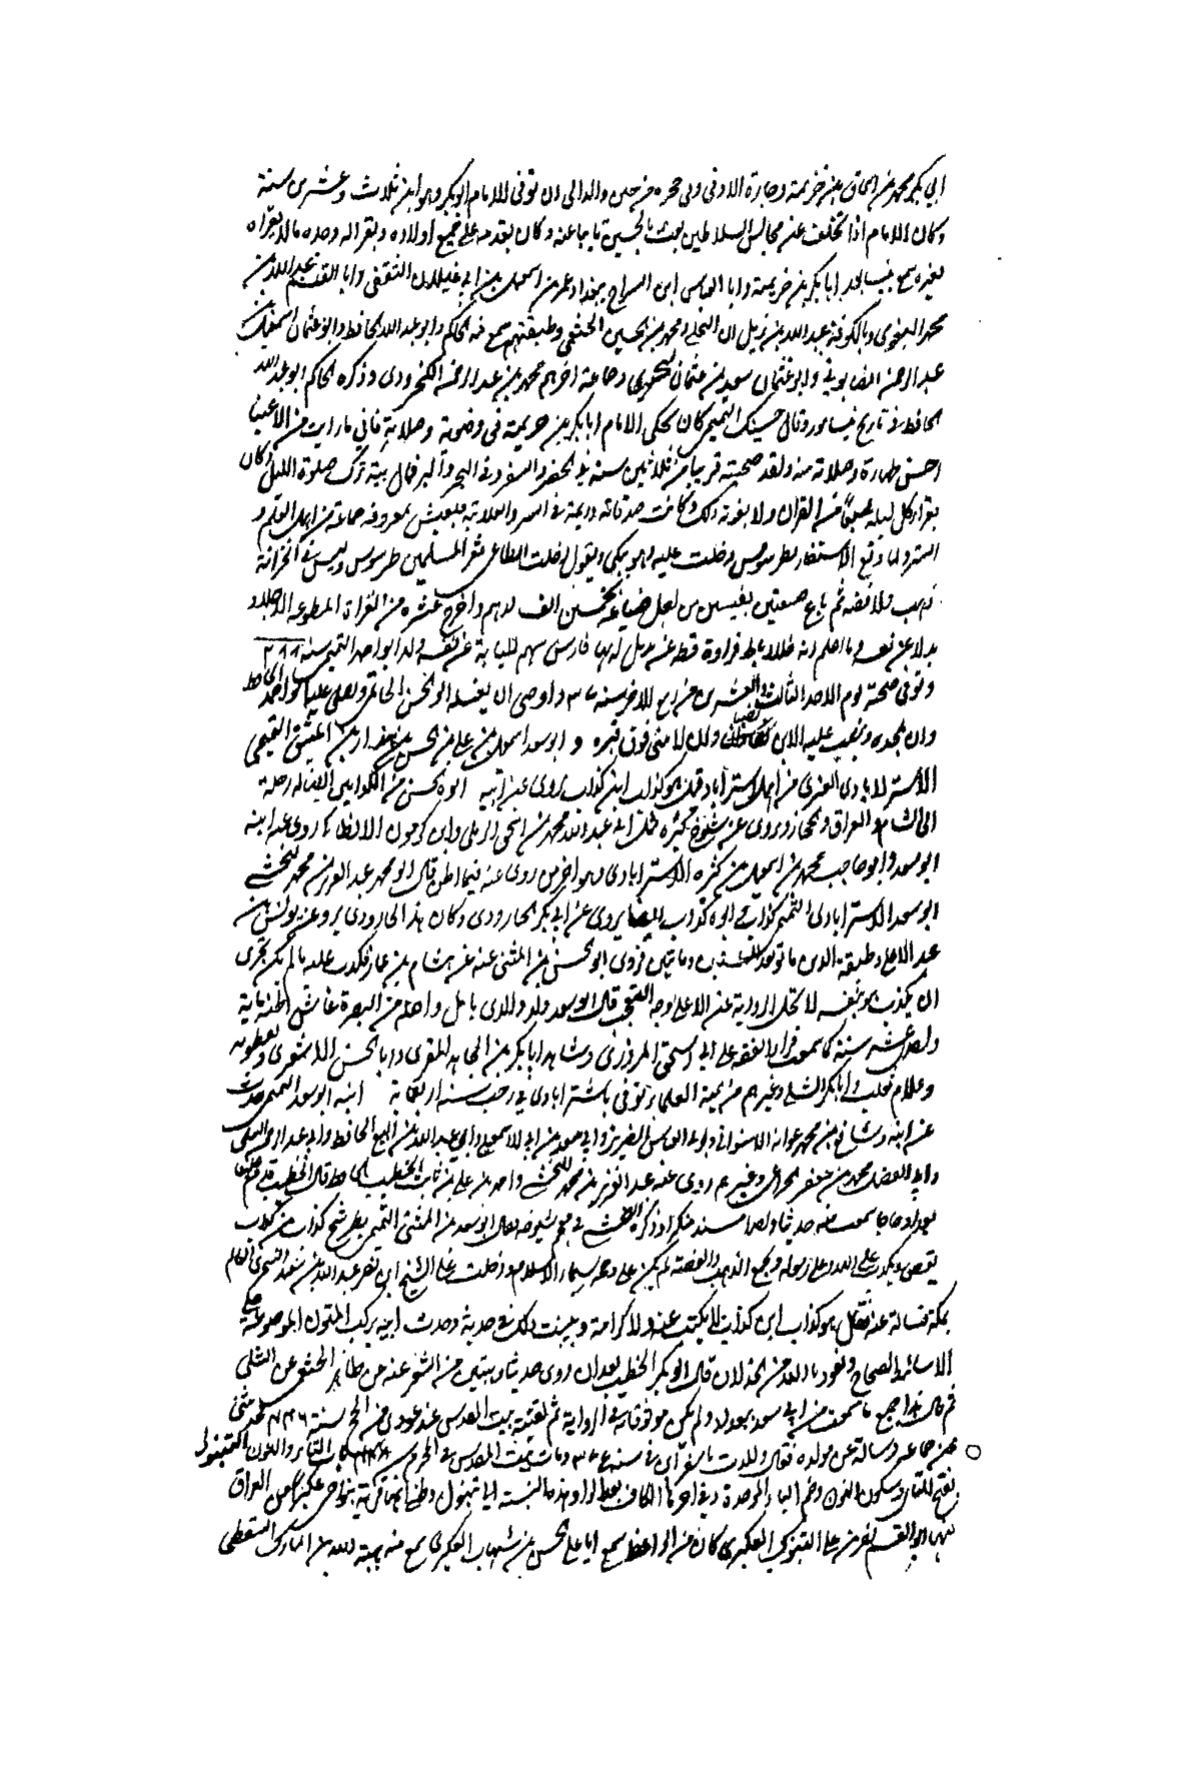 ابي بكر محمد بن اسحاق بن خزيمة وجاره الادنى وفى حجره من حين ولد الى ان توفى الامام ابو بكر وهو ابن ثلاث وعشرين سنة
وكان الامام اذا تخلف عن مجالس السلاطين بعث بالحسين نايبا عنه وكان يقدمه على جميع اولاده ويقرا له وحده ما لا يقراه
لغيره سمع بنيسابور ابا بكر بن خزيمة وابا العباس ابن السراج ببغداد عمر بن اسمعيل بن ابي غيلان الثقفى وابا القسم عبدالله بن
محمد البغوى وبالكوفة عبد الله بن زيدان البجلى ومحمد بن الحسين الخثعمى وطبقتهم سمع منه الحاكم ابو عبد الله الحافظ وابو عثمان اسمعيل بن
عبد الرحمن الصابوني وابو عثمان سعيد بن عثمان وجماعة اخرهم محمد بن عبد الرحمن الكنجرودى وذكره الحاكم ابو عبد الله
الحافظ في تاريخ نيسابور وقال حسينك التميمى كان يحكى الامام ابا بكر بن خزيمة فى وضوئه وصلاته فاني ما رايت من الاغنيا
احسن طهارة وصلاة منه ولقد صحبته قريبا من ثلاثين سنة في الحضر والسفر وفى الحر والبرد فما رايته ترك صلوة الليل وكان
يقرا كل ليلة سبعا من القران ولا يفوته ذلك وكانت صدقاته دايمة فى السر والعلانية يعيش بمعروفه جماعة من اهل العلم و
الستر ولما وقع الاستنفار لطرسوس دخلت عليه وهو يبكى ويقول دخلت الطاغى ثغر المسلمين طرسوس وليس فى الخزانة
ذهب ولا فضه ثم باع ضيعتين نفيستين من اجل ضياعه بخمسين الف درهم واخرج عشرة من الغزاة المطوعة الاجلاد
بدلا عن نفسه وما اعلم انه خلا رباط فراوة قط عن بديل له بها فارس شهم للنيابة عن نفسه ولد ابو احمد التميمى سنة ٢٨٨
وتوفى صبيحة يوم الاحد الثالث والعشرين من ربيع الاخر سنة ٣٧٥ واوصى ان يغسله ابو الحسن الحاتمى ويصلى عليه ابو احمد الحافظ
وان يلحد له وينصب عليه اللبن نصبا وان لا يبنى فوق قبره و ابو سعد اسمعيل بن على بن الحسن بن بندار بن المثنى التميمى
الاستراباذى العنبرى من اهل استراباد قيل هو كذاب ابن كذاب يروى عن ابيه ابوه الحسن من الكذابين ايضا له رحلة
الى الشام والعراق والحجاز ويروى عن شيوخ كثيرة مثل ابي عبد الله محمد بن اسحق الرملى وابن كرمون الانطاكى روى عنه ابنه
ابو سعد وابو حاجب محمد بن اسمعيل بن كثير الاستراباذى وهو اخر من روى عنه فيما اظن قال ابو محمد عبد العزيز بن محمد النخشبى
ابو سعد الاستراباذى التميمى كذاب وابوه كذاب ايضا يروى عن ابي بكر الجارودى وكان هذا الجارودى يروى عن يونس بن
عبد الاعلى وطبقته الذين ماتوا بعد الستين وماتين فروى ابو الحسن بن المثنى عنه عن هشام بن عمار فكذب عليه ما لم يكن يجترى
ان يكذب هو بنفسه لا تحل الرواية عنه الا على وجه التعجب قال ابو سعد ولد والدى بامل وحمل من البصرة عاش الخ ثمانية
وتسعين سنة كما سمعت قرا الفقه على ابي اسحق المروزى وشاهد ابا بكر بن مجاهد المقرى وابا الحسن الاشعرى ونفطويه
وغلام ثعلب وابا بكر الشبلى وغيرهم من ايمة العلماء توفى باستراباد فى رجب سنة اربعماية ابنه ابو سعد التميمى حدث
عن ابيه وشافع بن محمد بن ابي عوانة الاسفراينى وابي العباس الضرير وابي سعد بن ابي بكر الاسمعيلى وابي عبد الله بن البيع الحافظ وابي عبد الرحمن السلمى
وابي الفضل محمد بن جعفر الخزاعى وغيرهم روى عنه عبد العزيز بن محمد النخشبى واحمد بن على بن ثابت الخطيب الحافظ قال الخطيب قدم علينا
بغداد حاجا سمعت منه حديثا واحدا مسندا منكرا وذكره النخشبى فى معجم شيوخه فقال ابو سعد بن المثنى التميمى شيخ كذاب بن كذاب
يقص ويكذب على الله وعلى رسوله ويجمع الذهب والفضة لم يكن على وجهه سيماء الاسلام دخلت على الشيخ ابي نصر عبد الله بن سعيد السجزى العالم
بمكة فسالته عنه فقال هو كذاب ابن كذاب لا يكتب عنه ولا كرامة وتبينت ذلك فى حديثه وحديث ابيه يركب المتون الموضوعة على
الاسانيد الصحاح ونعوذ بالله من الخذلان قال ابو بكر الخطيب بعد ان روى حديثا وبيتين من الشعر عنه عن طاهر الخثعمى عن الشبلى
ثم قال هذا جميع ما سمعت من ابي سعد ببغداد ولم يكن موثوقا به فى الرواية ثم لقيته ببيت المقدس عند عودى من الحج سنة ٤٤٦ فحدثنى
عن جماعة وسالته عن مولده فقال ولدت باسفراين فى سنة ٣٧٥ ومات ببيت المقدس فى المحرم سنة ٤٤٨ باب التاء والنون التنبوكى
بفتح التاء وسكون النون وضم الباء الموحدة وفى اخرها الكاف بعد الواو هذه النسبة الى تنبوك وظني انها قرية بنواحى عكبرا من العراق
منها ابو القسم نصر بن على التنبوكى العكبرى كان من الوعاظ سمع ابا على الحسن بن شهاب العكبرى سمع منه هبة الله بن المبارك السقطى